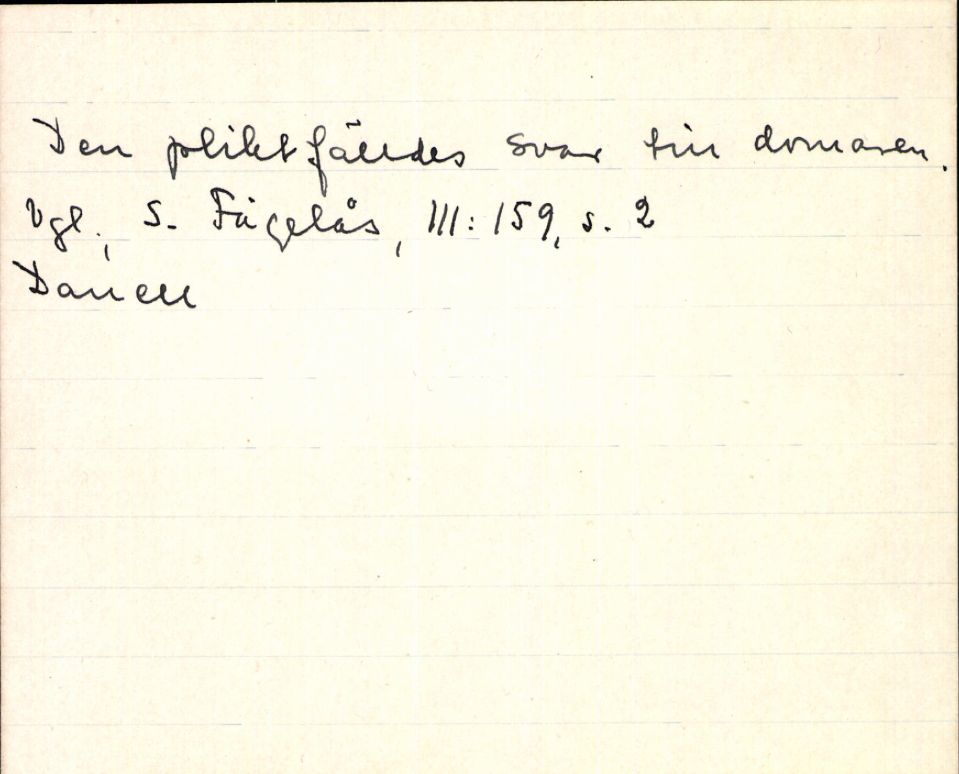 Den pliktfälldes svar till domaren.
Vgl., S. Fågelås, III:159, s. 2
Danell